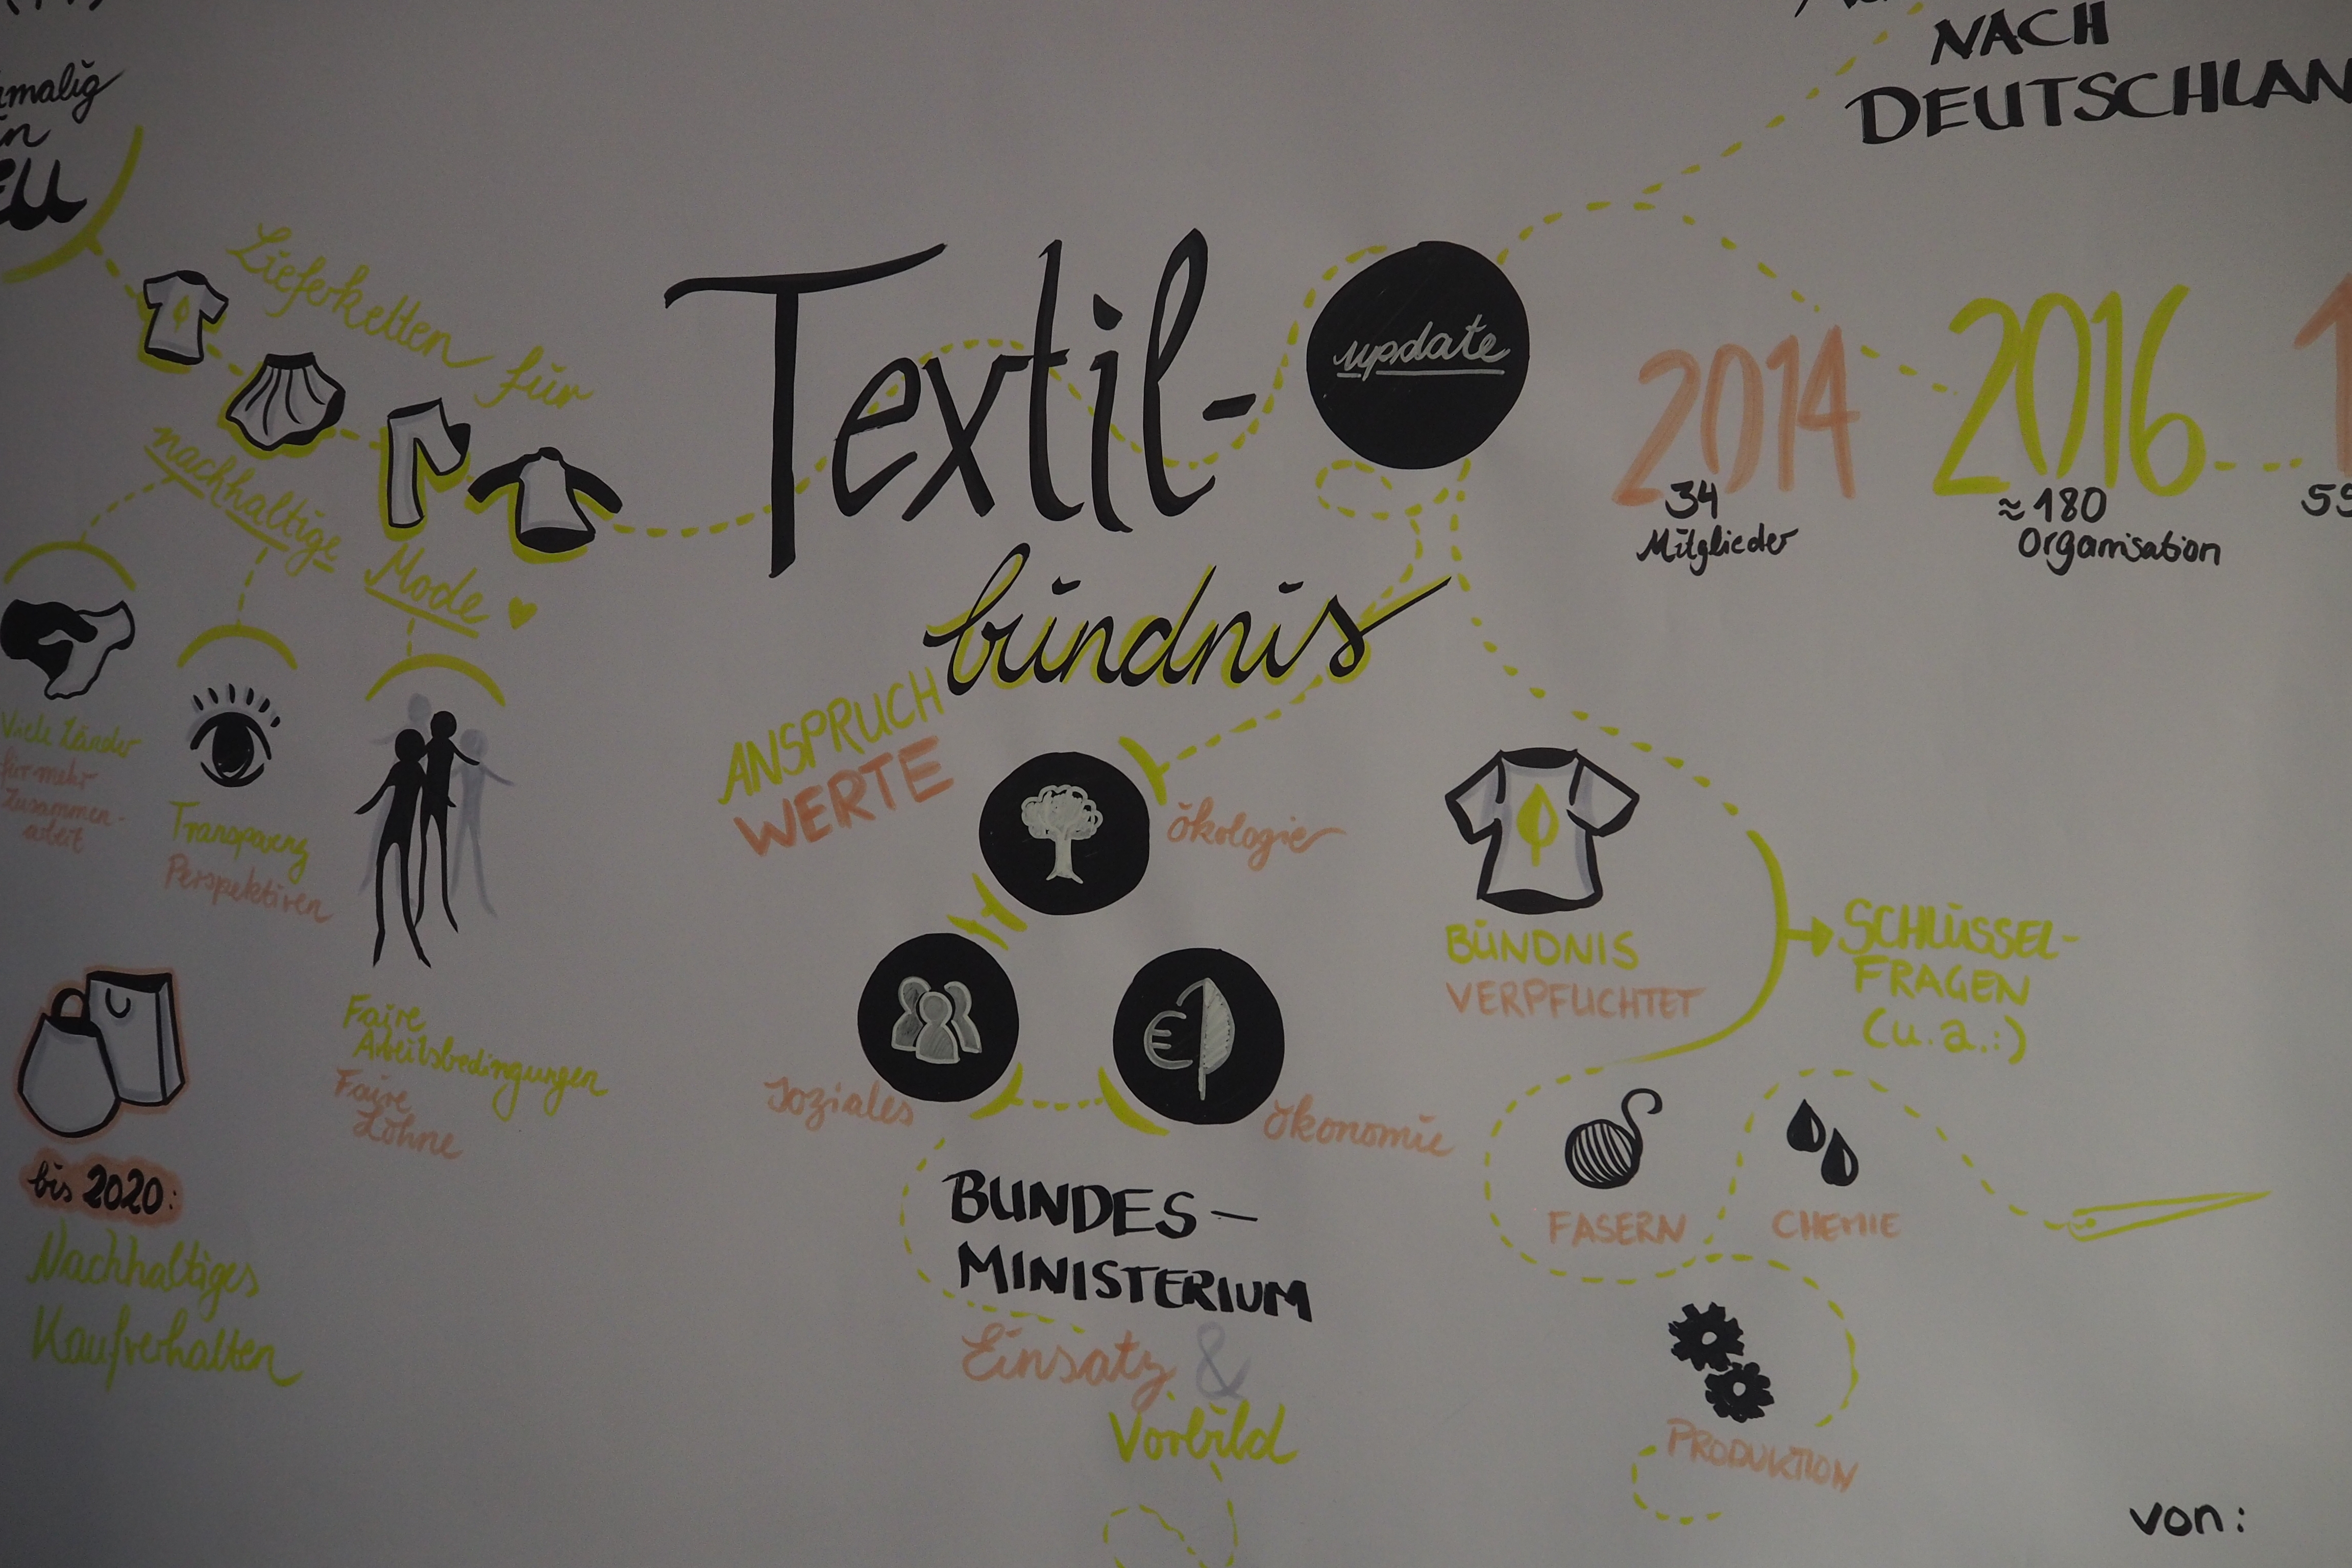 EU
Lieferketten für
nachhaltige
Mode
Viele Länder
für mehr
Zusammen-
arbeit
Transparenz
Perspektiven
Faire
Arbeitsbedingungen
Faire
Löhne
bis 2020:
Nachhaltiges
Kaufverhalten
Textil-
bündnis
update
ANSPRUCH
WERTE
Ökologie
Soziales
Ökonomie
BUNDES-
MINISTERIUM
Einsatz &
Vorbild
NACH
2014
34
Mitglieder
2016
≈ 180
Organisation
BÜNDNIS
VERPFLICHTET
SCHLÜSSEL-
FRAGEN
(u.a.:)
FASERN
CHEMIE
PRODUKTION
von: